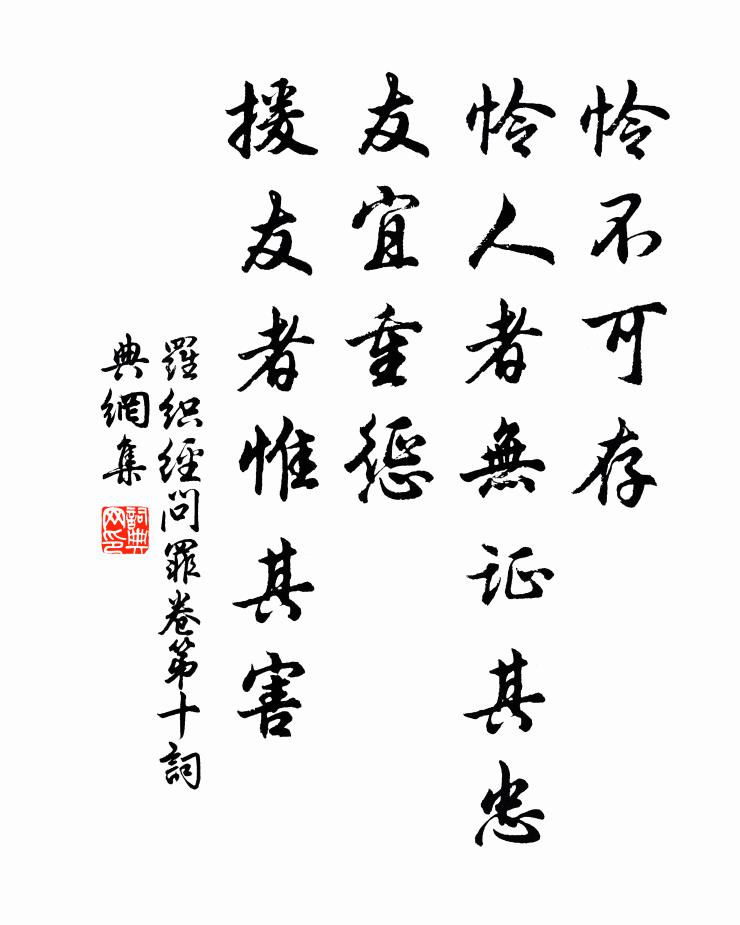 怜不可存
怜人者無证其忠
友宜重惩
援友者惟其害
羅织經問罪卷第十詞
典網集
詞典网印